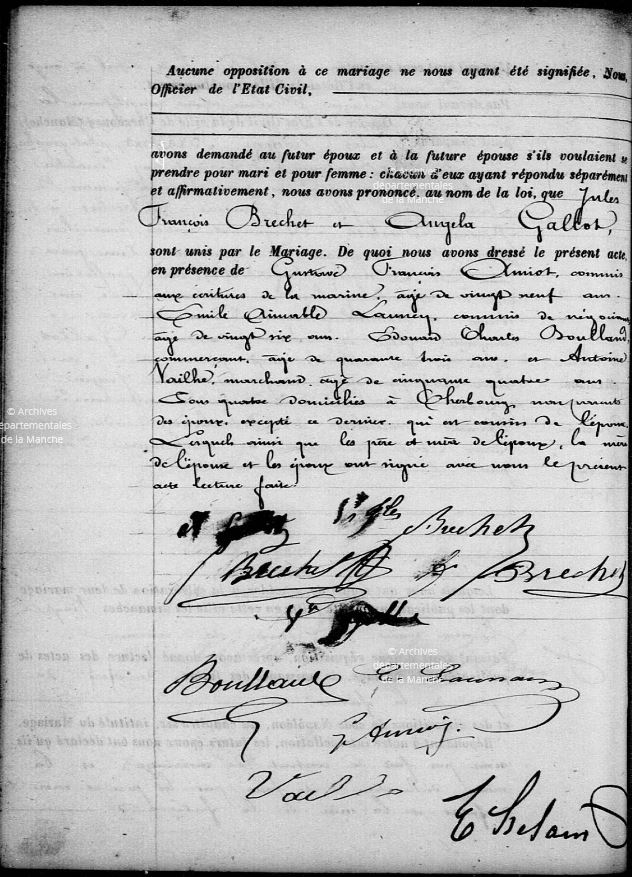 Aucune opposition à ce mariage ne nous ayant été signifiée, Nous,
Officier de l'Etat Civil,
avons demandé au futur époux et à la future épouse s'ils voulaient se
prendre pour mari et pour femme : chacun d'eux ayant répondu séparément
et affirmativement, nous avons prononcé, au nom de la loi, que Jules
François Brechet et Angela Gallot,
sont unis par le Mariage. De quoi nous avons dressé le présent acte,
en présence de Gustave François Amiot, commis
aux écritures de la marine, âgé de vingt neuf ans.
Emile Aimable Launey, commis de négociant
âgé de vingt six ans. Edouard Charles Boulland,
commerçant, âgé de quarante trois ans, et Antoine
Vailhé, marchand, âgé de cinquante quatre ans.
Tous quatre domiciliés à Cherbourg, non parents
des époux, excepté ce dernier, qui est cousin de l'épouse,
Lesquels ainsi que les père et mère de l'époux, la mère
de l'épouse et les époux ont signé avec nous le présent
acte lecture faite.
Brechet
Brechet Brechet
Boulland E Launey
G Amiot
© Archives
départementales
de la Manche
© Archives
départementales
de la Manche
départementales
de la Manche